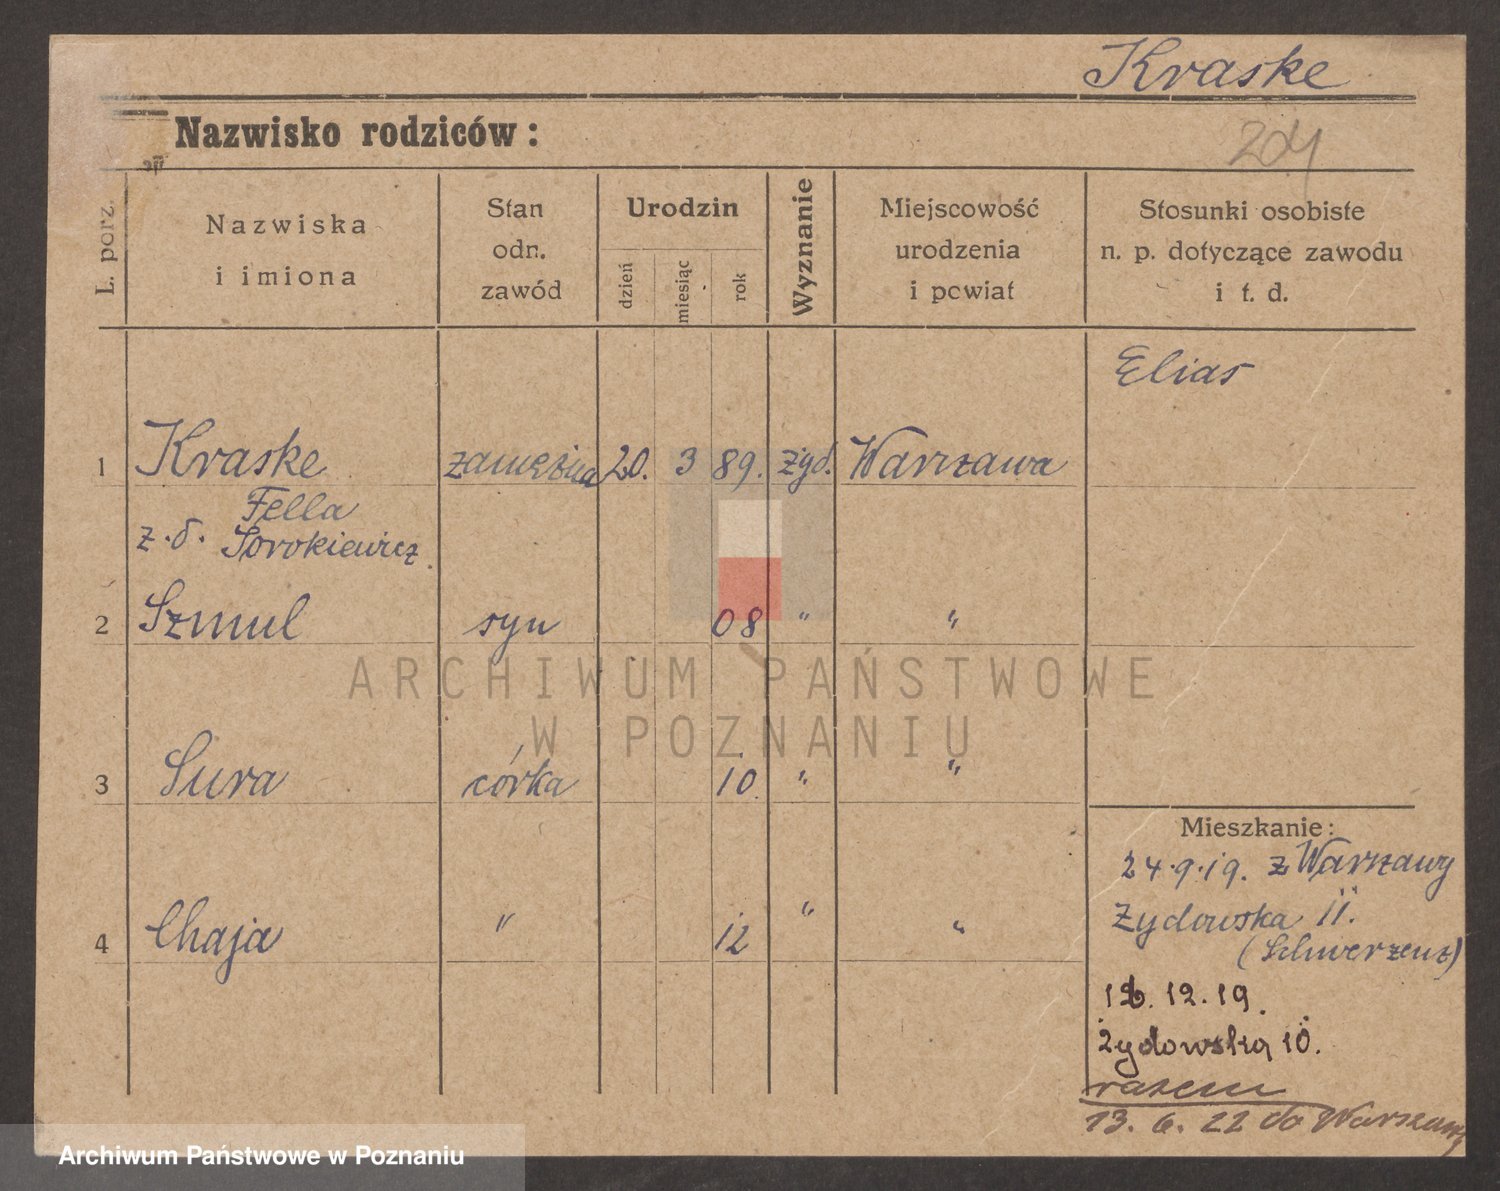 Kraske
Nazwisko rodziców:
204
L. porz.
Nazwiska
i imiona
Stan
odn.
zawód
Urodzin
dzień
miesiąc
rok
Wyznanie
Miejscowość
urodzenia
i powiat
Stosunki osobiste
n. p. dotyczące zawodu
i t. d.
Elias
1 Kraske zamężna 20. 3 89. żyd. Warszawa
Fella
z. d. Sorokiewicz.
2 Szmul syn 08 " "
3 Sura córka 10. " "
4 Chaja " 12 " "
Mieszkanie:
24.9.19. z Warszawy
Żydowska 11.
(Schwerzenz)
12.19.
Żydowska 10.
razem
13. 6. 22 do Warszawy
ARCHIWUM PAŃSTWOWE
W POZNANIU
Archiwum Państwowe w Poznaniu